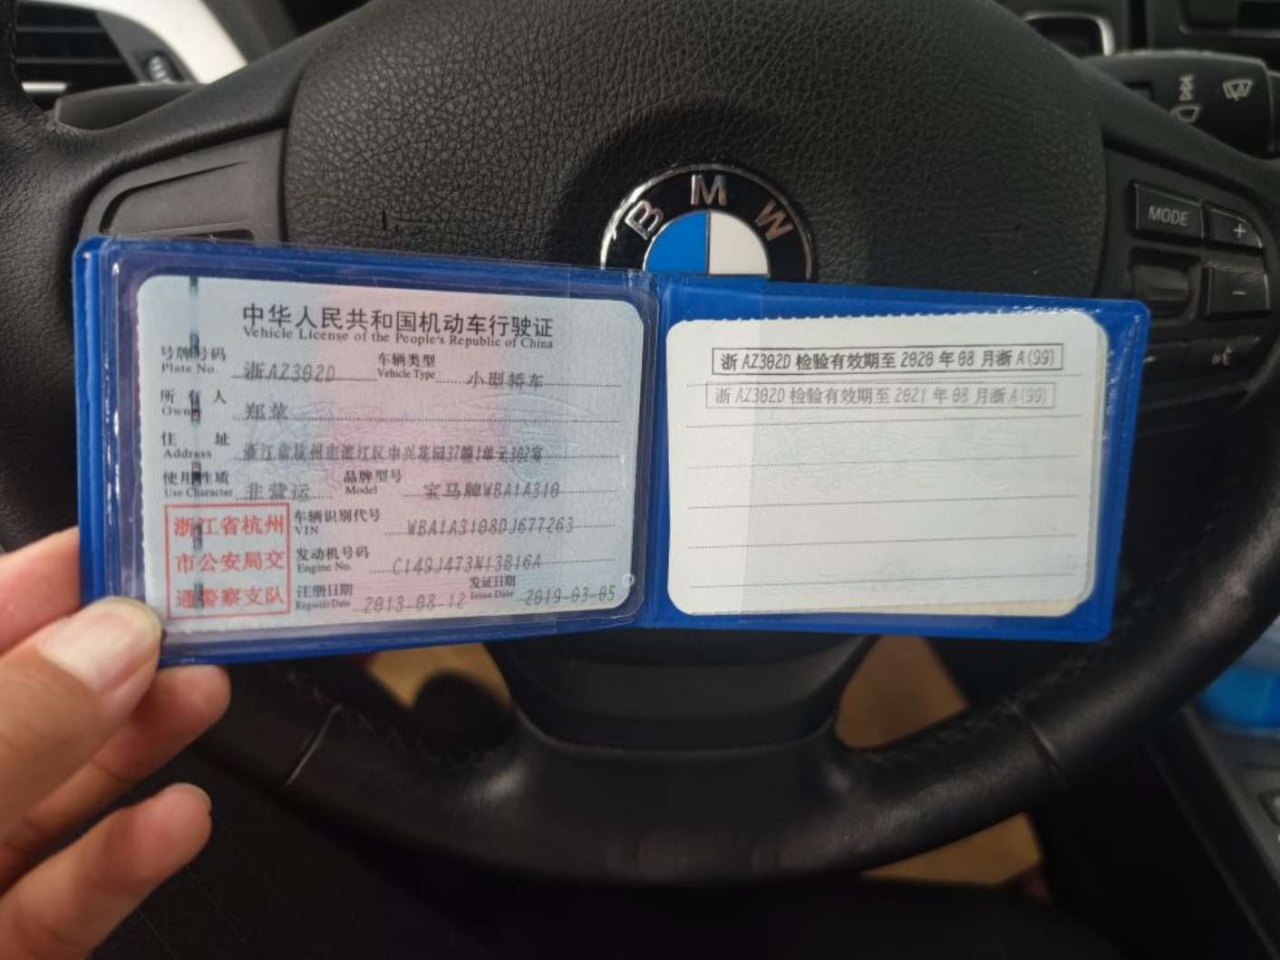 BMW
MODE
+
−
中华人民共和国机动车行驶证
Vehicle License of the People's Republic of China
号牌号码 浙AZ302D 车辆类型 小型轿车
Plate No. Vehicle Type
所有人 郑
Owner
住址 浙江省杭州市滨江区中兴花园37幢1单元302室
Address
使用性质 非营运 品牌型号 宝马牌WBA1A310
Use Character Model
浙江省杭州
市公安局交
通警察支队
车辆识别代号 WBA1A3108DJ677263
VIN
发动机号码 C149J473N13B16A
Engine No.
注册日期 2013-08-12 发证日期 2019-03-05
Register Date Issue Date
浙AZ302D检验有效期至2020年08月浙A(99)
浙AZ302D检验有效期至2021年08月浙A(99)